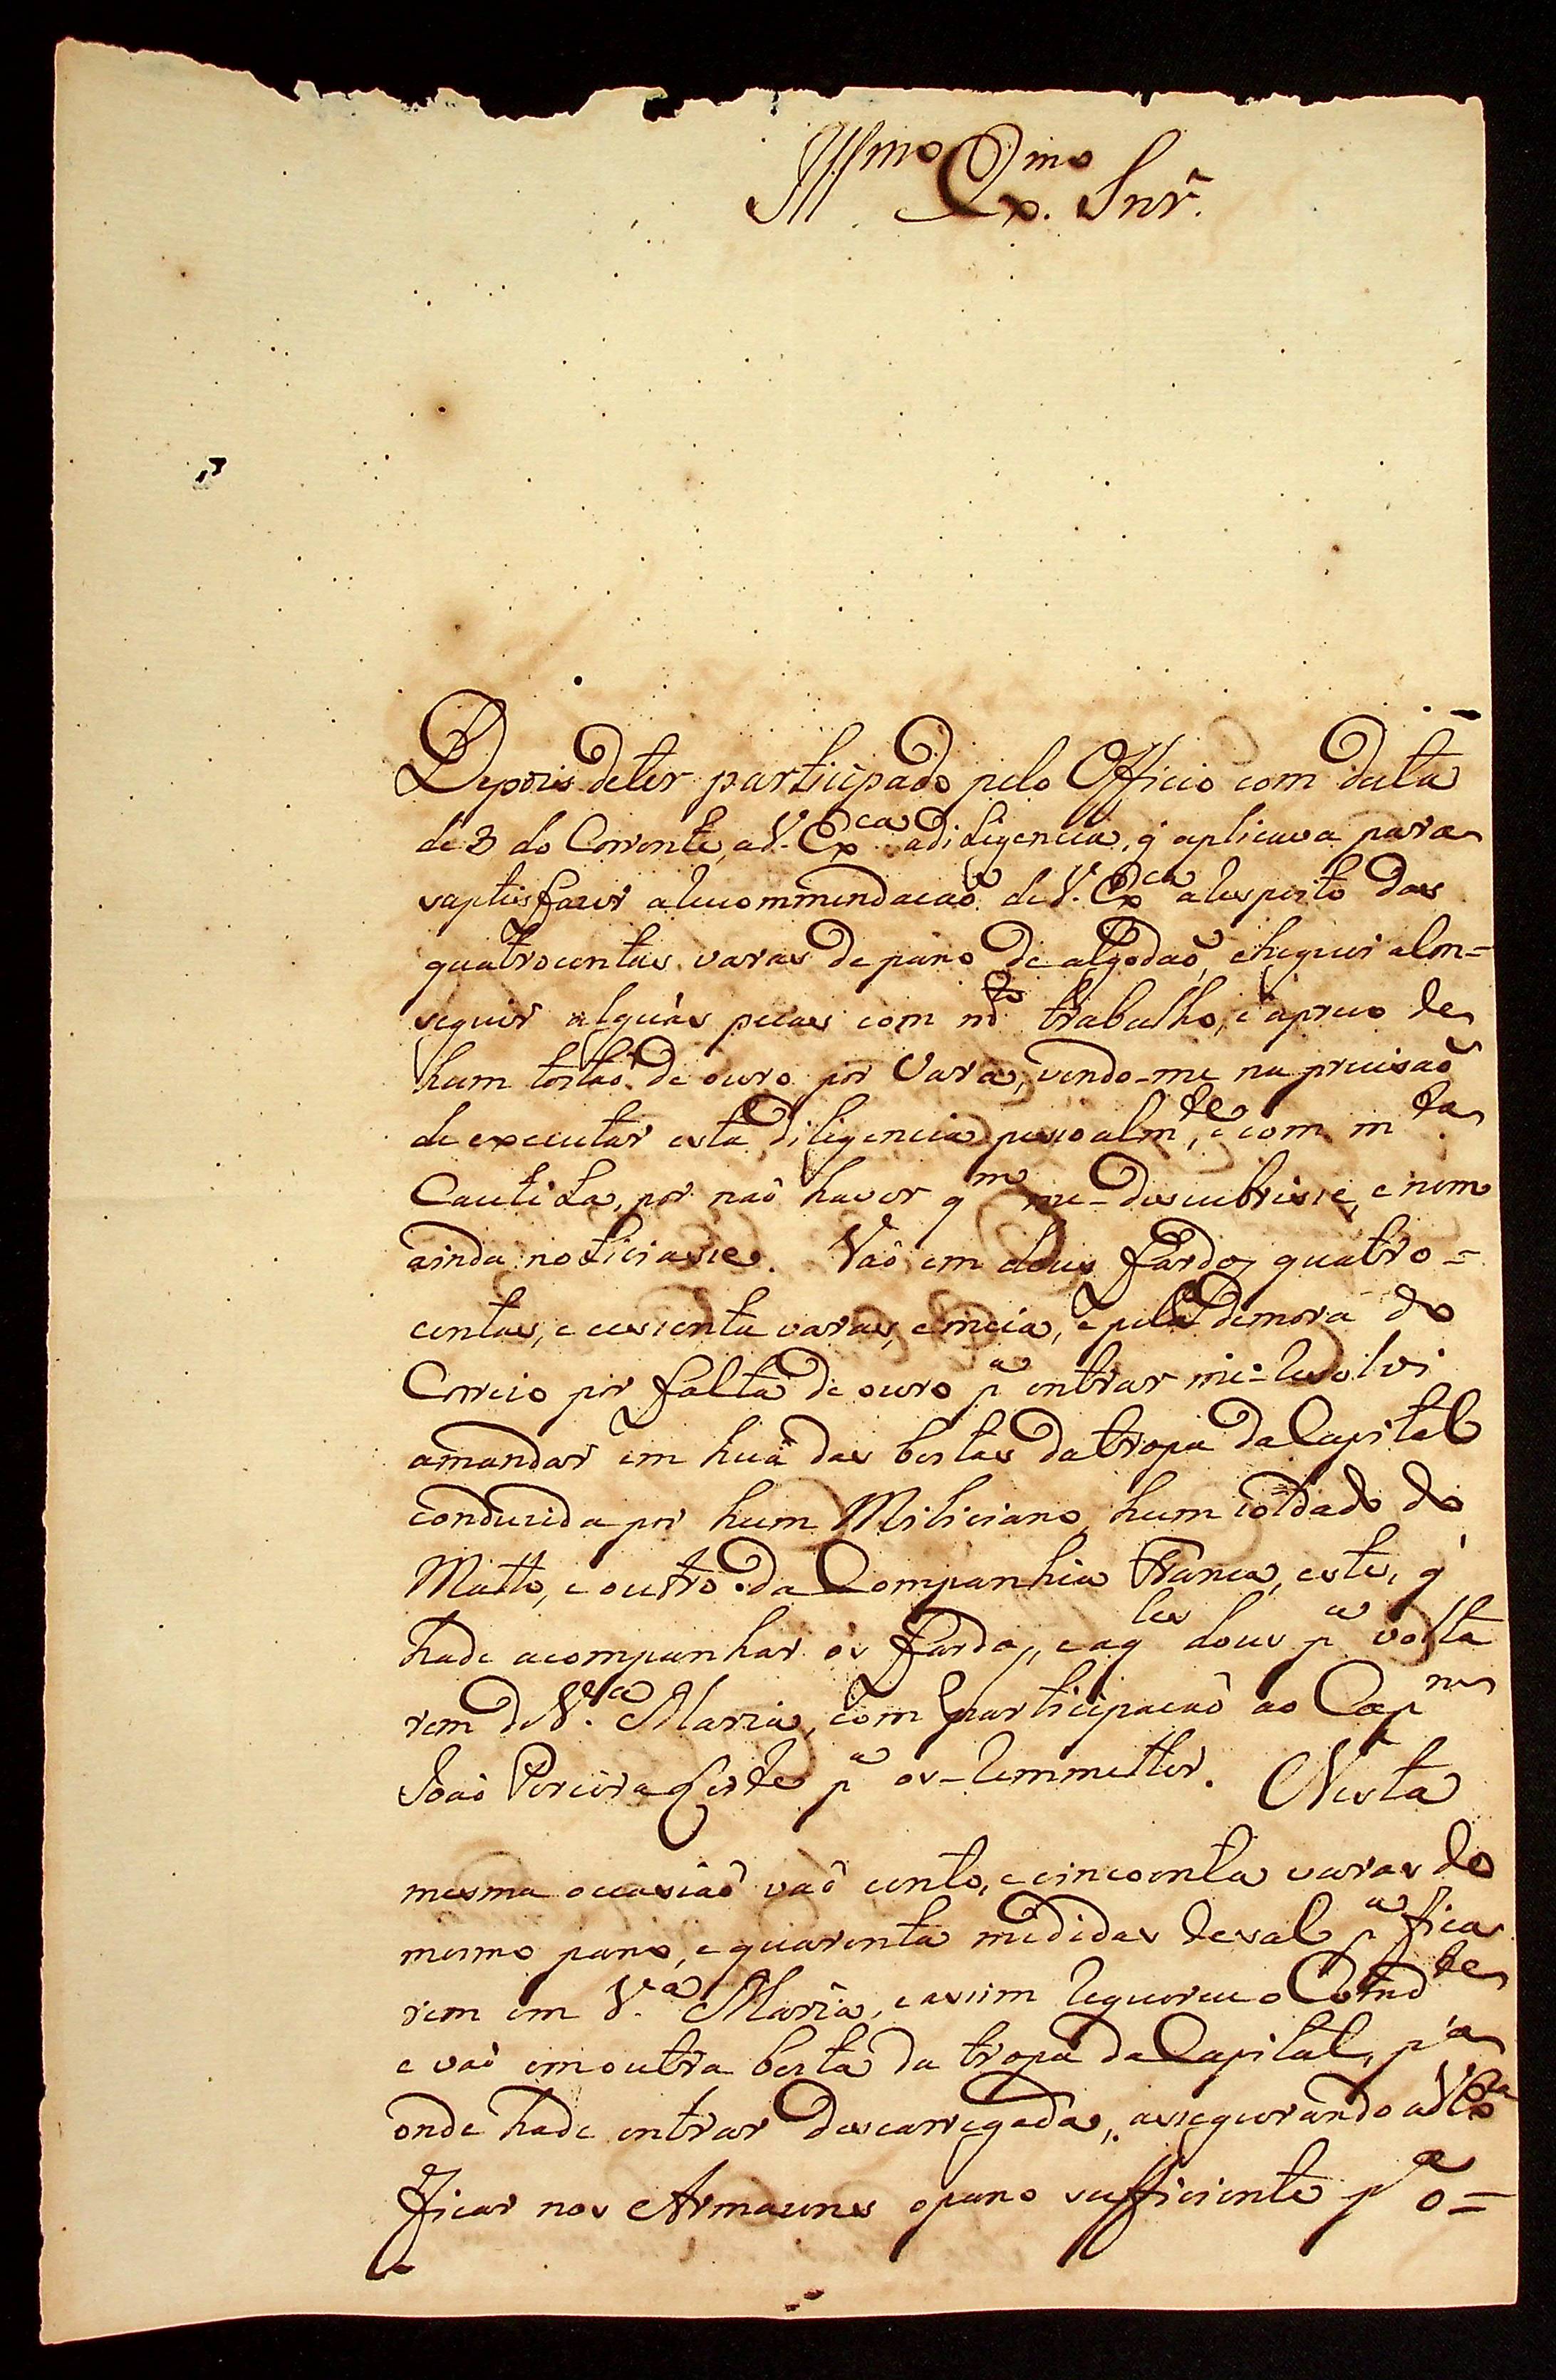 Illmo. Exmo. Snr.
Depois deter participado pelo Officio com data
de 3 do Corrente, a V. Exca. adiligencia, q' aplicava para
saptisfazer a Recommendacaõ de V. Exca a Respeito das
quatrocentas varas de pano de algodaõ, cheguei a Con=
seguir alguãs pecas com mto trabalho, e apreco de
hum tostaõ de ouro por Vara, vendo-me na precisaõ
de executar esta diligencia pesoalmte, e com mta
Cautila, por naõ haver qm me-descubrisse, e nem
ainda noticiasse. Vaõ em dous fardos quatro=
centas, e cesenta varas, e meia, e pela demora do
Correio por falta de ouro pa entrar me-Resolvi
amandar em huã das bestas da tropa da Capital
conduzida por hum Miliciano, hum coldado do
Matto, e outro da Companhia Franca, este, q'
hade acompanhar os fardos, e aqles dous pa volta
rem d V.a Maria, com participacaõ ao Capm
Joaõ Pereira Leite pa os-Remmetter. Nesta
mesma occasiaõ vaõ cento, e cincoenta varas do
mesmo pano, e quarenta medidas desal pa fica
rem em V.a Maria, e assim Requereu o Comdte
e vaõ em outra besta da tropa da Capital, pa
onde hade entrar descarregada, assegurando a V Exa
ficar nos Armazens o pano sufficiente pa o=